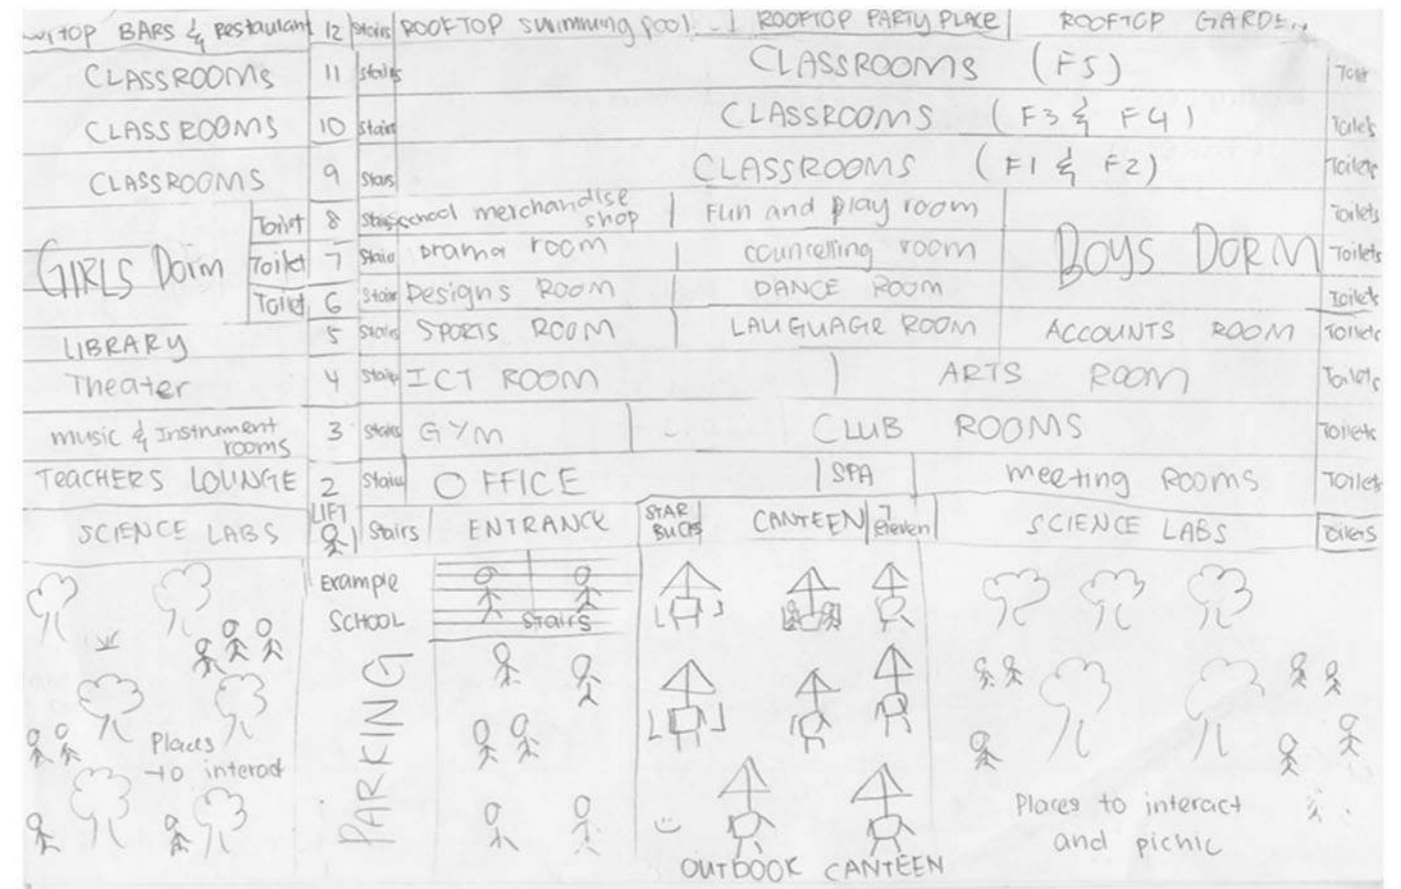 TOP BARS & Restaurant 12 Stairs ROOFTOP swimming pool ROOFTOP PARTY PLACE ROOFTOP
CLASSROOMS 11 Stairs CLASSROOMS (F5)
CLASSROOMS 10 Stairs CLASSROOMS (F3 & F4) Toilets
CLASSROOMS 9 Stairs CLASSROOMS (F1 & F2) Toilets
Toilet 8 school merchandise shop Fun and play room Toilets
GIRLS Dorm Toilet 7 Stair Drama room councelling room BOYS DORM Toilets
Toilet 6 Stair Designs ROOM DANCE ROOM Toilets
LIBRARY 5 Stairs SPORTS ROOM LAUGUAGE ROOM ACCOUNTS ROOM Toilets
Theater 4 Stairs ICT ROOM ARTS ROOM Toilets
music & Instrument rooms 3 Stairs GYM CLUB ROOMS Toilets
TEACHERS LOUNGE 2 Stairs OFFICE SPA meeting ROOMS Toilets
SCIENCE LABS LIFT 1 Stairs ENTRANCE STAR BUCKS CANTEEN 7 Eleven SCIENCE LABS Toilets
Example
SCHOOL
Stairs
PARKING
Places
to interact
Places to interact
and picnic
OUTDOOR CANTEEN